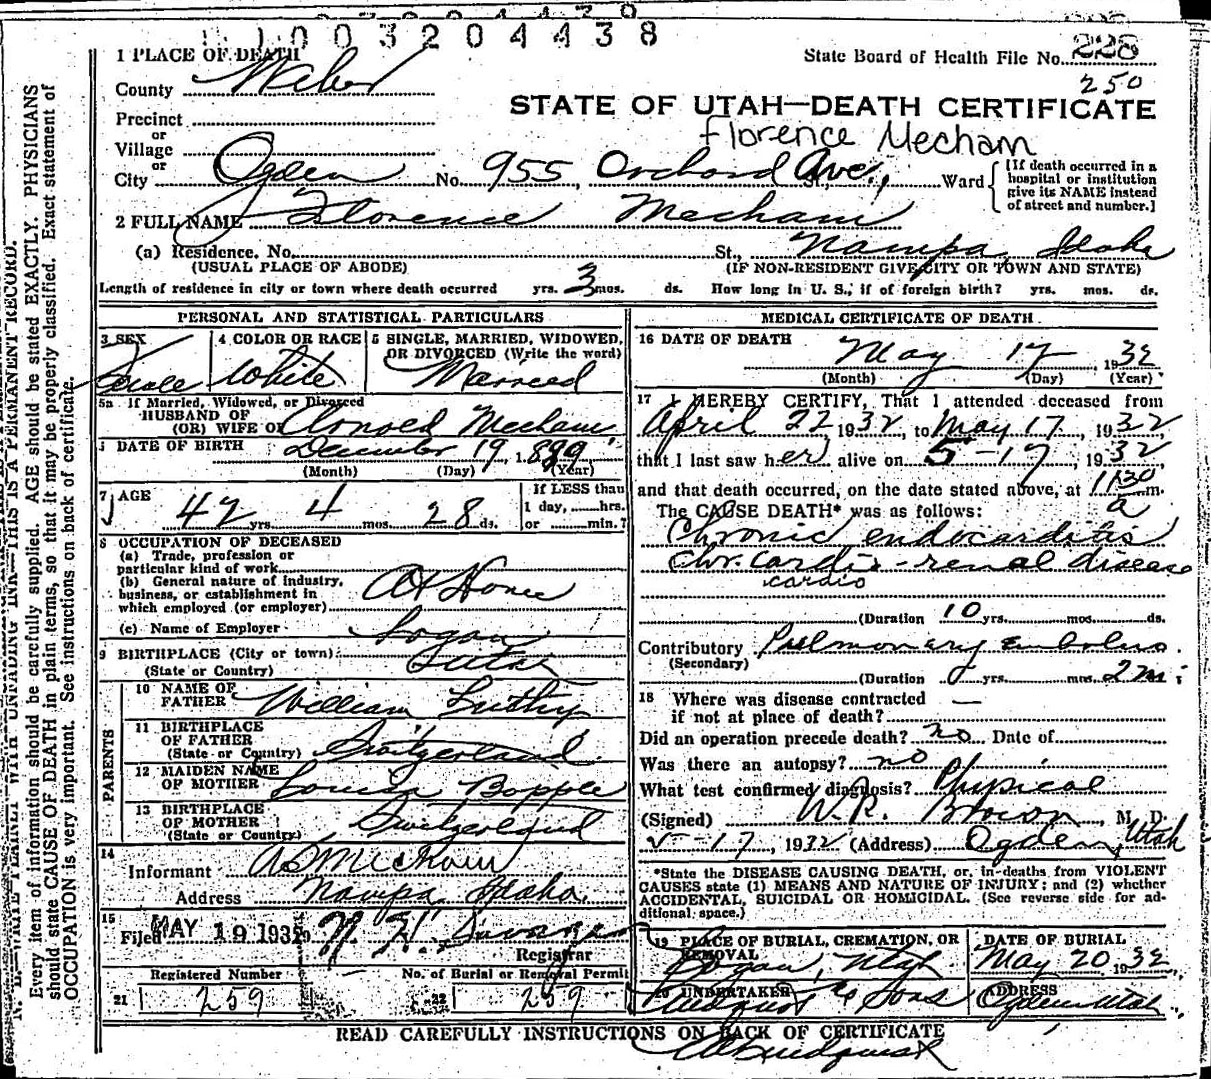 1003204438
1 PLACE OF DEATH
State Board of Health File No. 228
250
County Weber
STATE OF UTAH—DEATH CERTIFICATE
Precinct
Florence Mecham
or
Village
or
City Ogden No. 955, Orchard Ave, St., Ward
[If death occurred in a hospital or institution give its NAME instead of street and number.]
2 FULL NAME Florence Mecham
(a) Residence. No. St., Nampa, Idaho
(USUAL PLACE OF ABODE) (IF NON-RESIDENT GIVE CITY OR TOWN AND STATE)
Length of residence in city or town where death occurred yrs. 3 mos. ds. How long in U. S., if of foreign birth? yrs. mos. ds.
PERSONAL AND STATISTICAL PARTICULARS
3 SEX Female
4 COLOR OR RACE White
5 SINGLE, MARRIED, WIDOWED, OR DIVORCED (Write the word) Married
5a If Married, Widowed, or Divorced
HUSBAND OF
(OR) WIFE OF Mecham
DATE OF BIRTH December 19, 1889
(Month) (Day) (Year)
7 AGE 42 yrs. 4 mos. 28 ds.
If LESS than 1 day, hrs. or min.?
8 OCCUPATION OF DECEASED
(a) Trade, profession or particular kind of work
(b) General nature of industry, business, or establishment in which employed (or employer) At Home
(c) Name of Employer
9 BIRTHPLACE (City or town) Logan
(State or Country) Utah
PARENTS
10 NAME OF FATHER William Luthy
11 BIRTHPLACE OF FATHER (State or Country) Switzerland
12 MAIDEN NAME OF MOTHER Louisa Bopple
13 BIRTHPLACE OF MOTHER (State or Country) Switzerland
14
Informant A S Mecham
Address Nampa, Idaho
15
Filed MAY 19 1932
Registrar
Registered Number
21 259
No. of Burial or Removal Permit
22 259
MEDICAL CERTIFICATE OF DEATH
16 DATE OF DEATH May 17, 1932
(Month) (Day) (Year)
17 I HEREBY CERTIFY, That I attended deceased from
April 22, 1932, to May 17, 1932
that I last saw her alive on 5-17, 1932
and that death occurred, on the date stated above, at 1130 m.
The CAUSE DEATH* was as follows: a
Chronic endocarditis
Chr. Cardio-renal disease
cardio
(Duration 10 yrs. mos. ds.
Contributory Pulmonary Embolus.
(Secondary)
(Duration 0 yrs. mos. 2 mi
18 Where was disease contracted
if not at place of death? —
Did an operation precede death? no Date of
Was there an autopsy? no
What test confirmed diagnosis? Physical
(Signed) W. R. Brown, M. D.
5-17, 1932 (Address) Ogden, Utah
*State the DISEASE CAUSING DEATH, or, in deaths from VIOLENT
CAUSES state (1) MEANS AND NATURE OF INJURY; and (2) whether
ACCIDENTAL, SUICIDAL OR HOMICIDAL. (See reverse side for ad-
ditional space.)
19 PLACE OF BURIAL, CREMATION, OR REMOVAL Logan, Utah
DATE OF BURIAL May 20, 1932
20 UNDERTAKER & Sons
ADDRESS Ogden Utah
READ CAREFULLY INSTRUCTIONS ON BACK OF CERTIFICATE
Every item of information should be carefully supplied. AGE should be stated EXACTLY. PHYSICIANS
should state CAUSE OF DEATH in plain terms, so that it may be properly classified. Exact statement of
OCCUPATION is very important. See instructions on back of certificate.